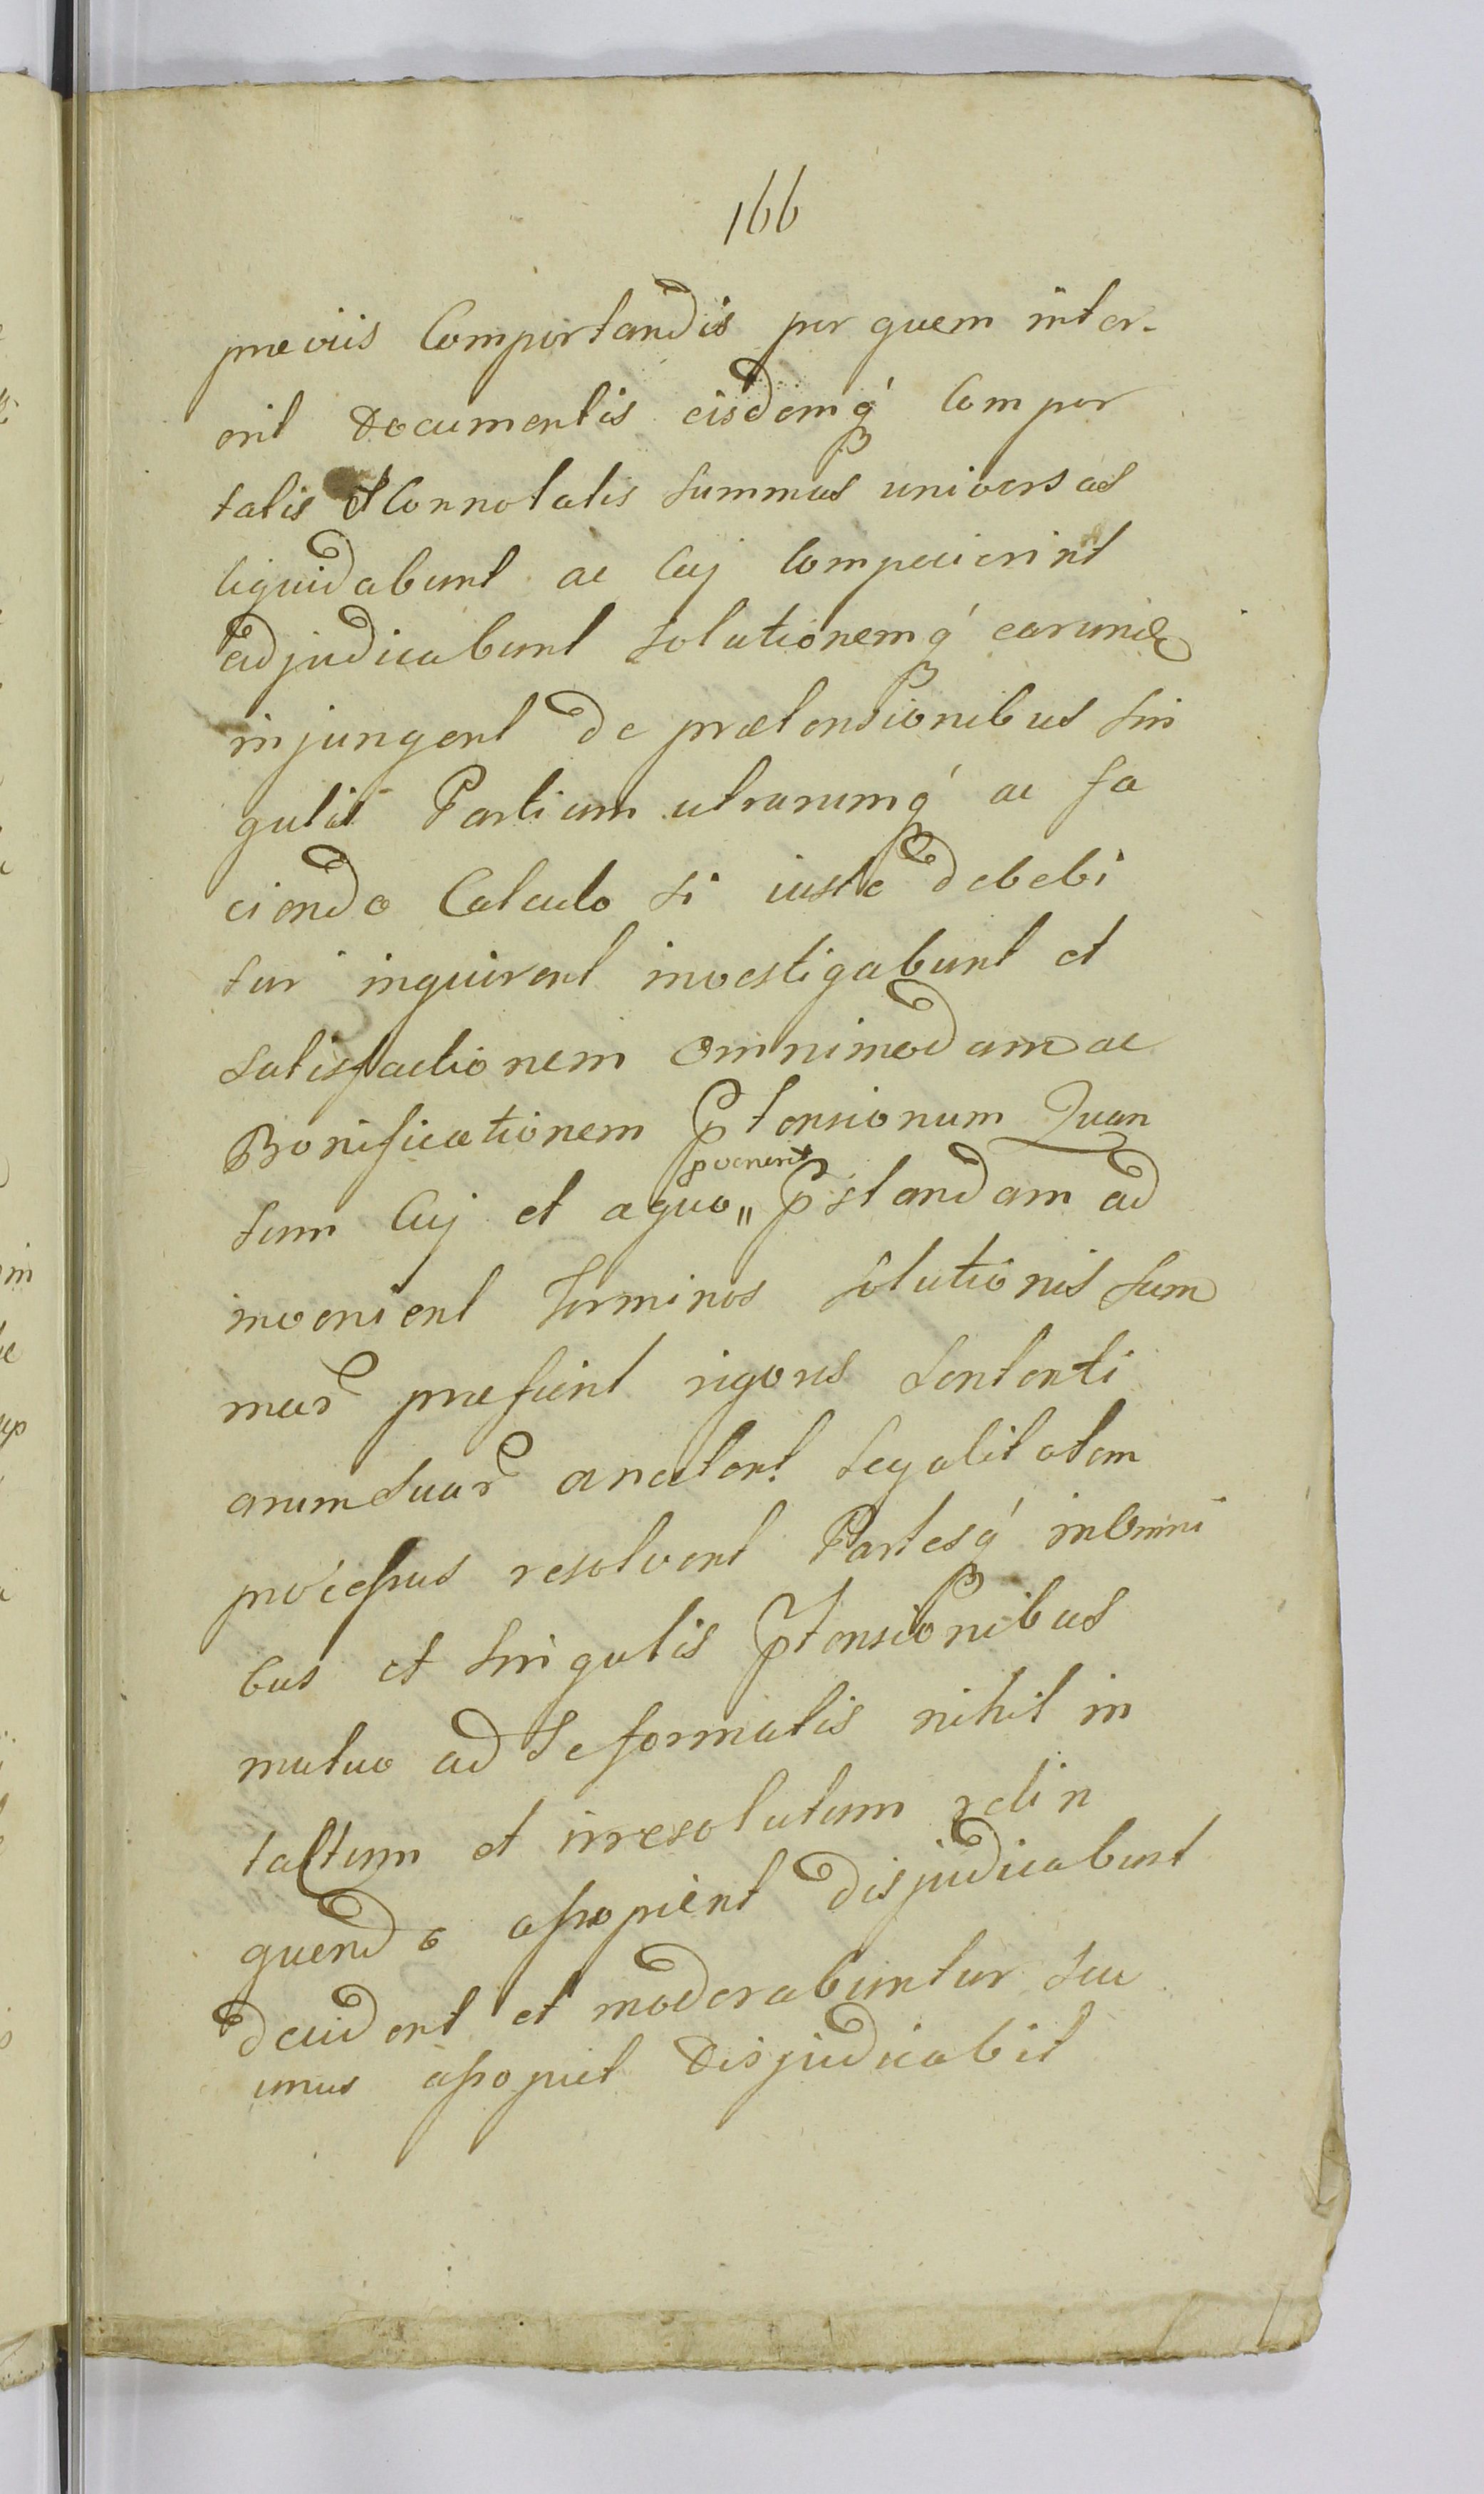 166
praeviis Comportandis per quem inter-
erit Documentis eisdemq́ Compor
tatis et Connotatis summas universas
liquidabunt ac Cuj Competierint
adjudicabunt solutionemq́ earund
injungent de praetensionibus sin
gulis Partium utrarumq́ ac fa
ciendo Calculo si iuste debebi
tur inquirent investigabunt et
satisfactionem omnimodam ac
Bonificationem Ptensionum Quan
tum Cuj et a quo " pvenerit Pstandam ad
invenient terminos solutionis sum
mar̃ praefient rigoris sententi
arum suar̃ anectent legalitatem
processus resolvent Partesq́ in Omni
bus et singulis Ptensionibus
mutuo ad se formatis nihil in
tactum et irresolutum relin
quendo assopient disjudicabunt
decident et moderabuntur seu
unus assopiet Disjudicabit